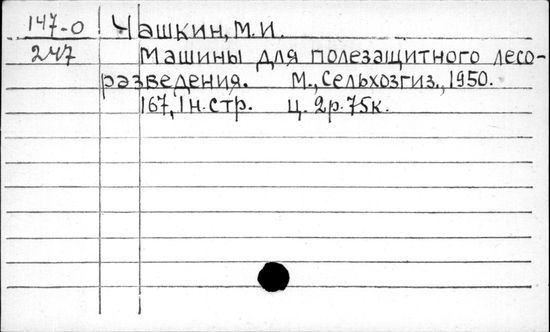 147-0 Чашкин, М.И.
247 Машины для полезащитного лесо-
разведения. М., Сельхозгиз., 1950.
167, 1 н. стр. ц. 2р. 75к.